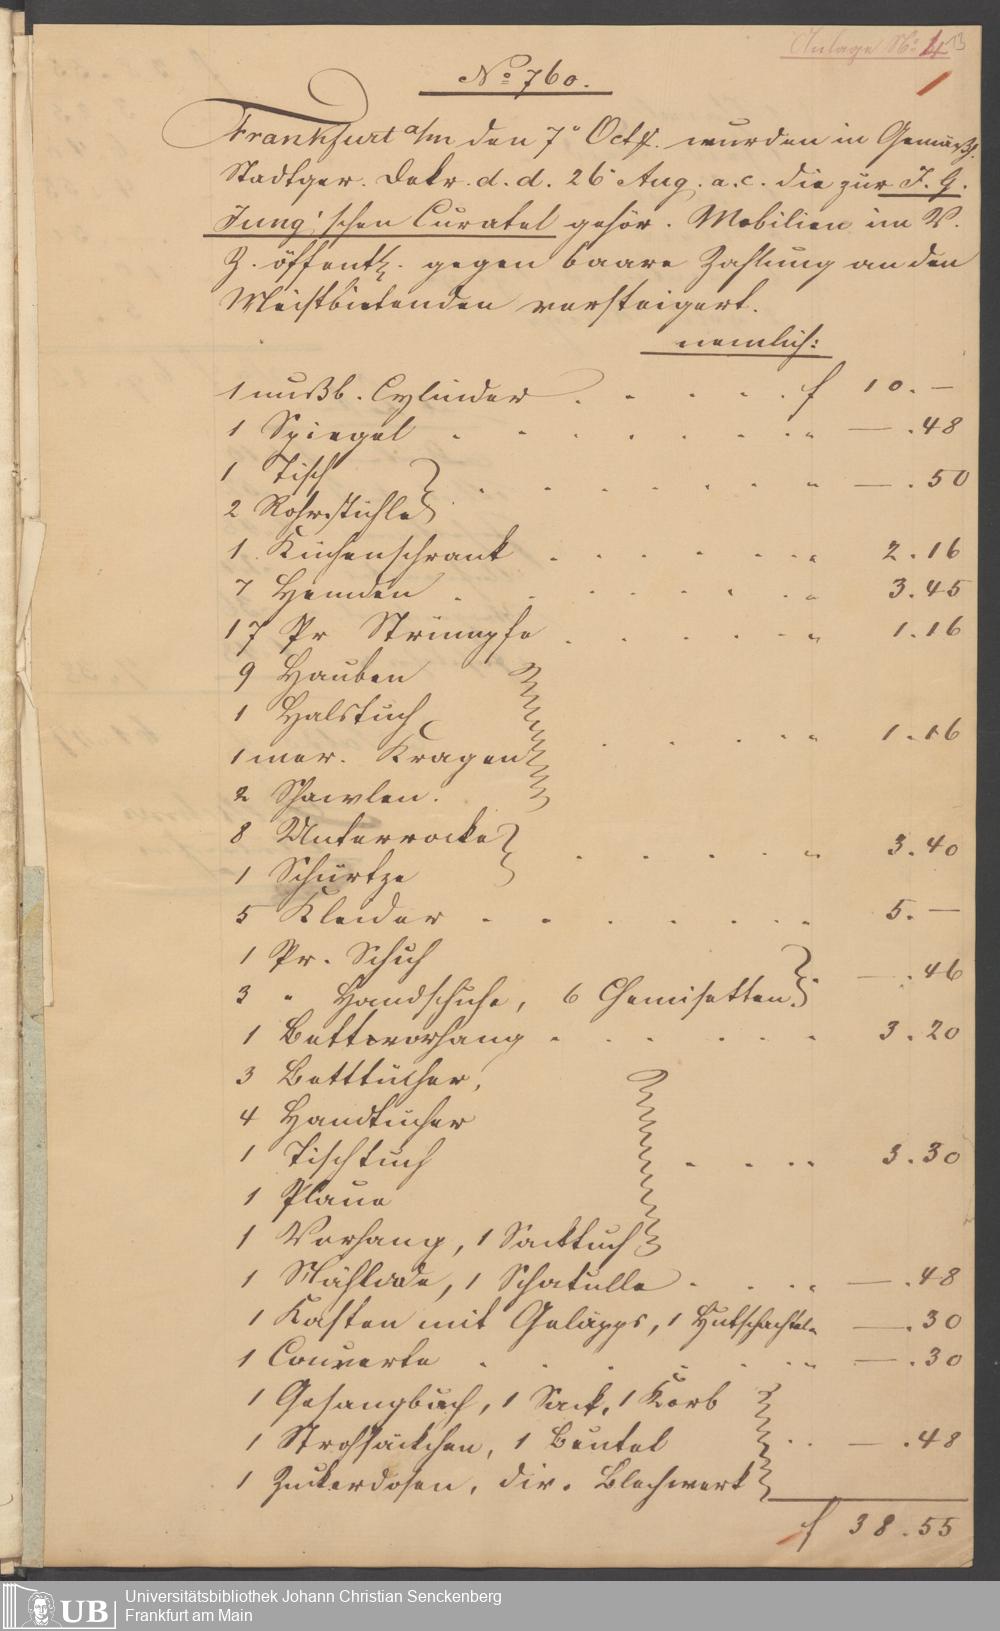 Anlage No: 4
13
No 760.
Frankfurt a/m den 7' Octb. wurden in Gemäßh.
Stadtger. Dekr. d. d. 26' Aug. a. c. die zur J. G.
Jung'schen Curatel gehör. Mobilien im V.
Z. öffentl. gegen baare Zahlung an den
Meistbietenden versteigert.
nemlich:
1 nußb. Cylinder . . . . . f 10. —
1 Spiegel . . . . . . . " — . 48
1 Tisch
2 Rohrstühle . . . . . . " — . 50
1 Küchenschrank . . . . . . " 2 . 16
7 Hemden . . . . . . . " 3. 45
17 Pr Strümpfe . . . . . " 1. 16
9 Hauben
1 Halstuch
1 mer. Kragen . . . . . " 1. 16
2 Shawlen.
8 Unterrocke
1 Schürtze . . . . . " 3. 40
5 Kleider . . . . . . . 5. —
1 Pr. Schuh
3 " Handschuhe, 6 Chemisetten. — . 46
1 Bettvorhang . . . . . . 3. 20
3 Betttücher,
4 Handtücher
1 Tischtuch . . . . 3. 30
1 Plaue
1 Vorhang, 1 Sacktuch
1 Nählade, 1 Schatulle . . . . " — . 48
1 Kasten mit Geläpps, 1 Hutschachtel " — . 30
1 Couverte . . . . . . . " — . 30
1 Gesangbuch, 1 Sack, 1 Korb
1 Strohsäckchen, 1 Beutel . . — . 48
1 Zuckerdosen, div. Blechwerk
f 38. 55
UB
Universitätsbibliothek Johann Christian Senckenberg
Frankfurt am Main